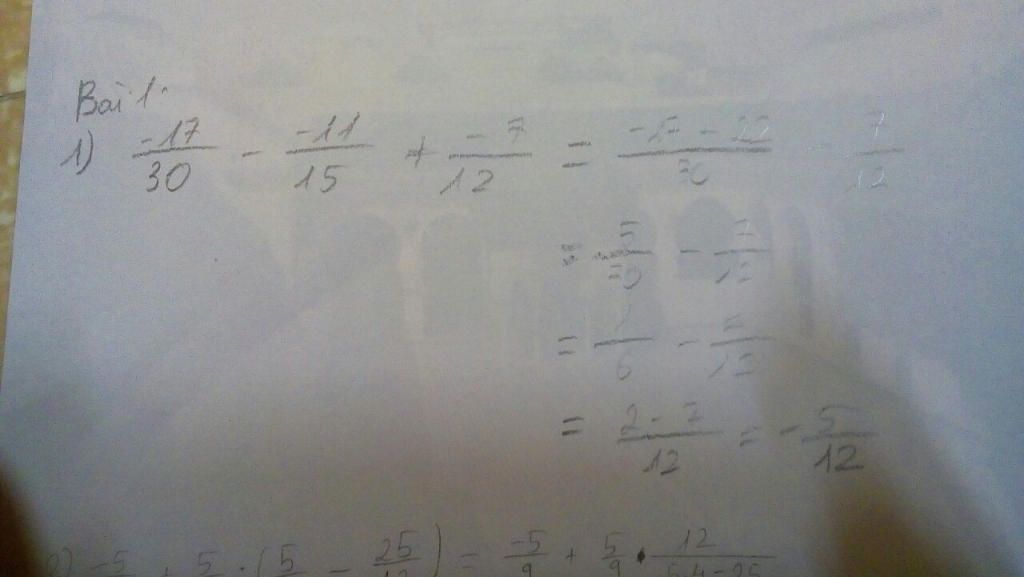 Bài 1.
1) -17/30 - -11/15 + -7/12 = -17 - 22/30 7/12
= 5/30 - 7/12
= 1/6 - 7/12
= 2-7/12 = -5/12
2) -5 + 5 · (5 - 25/12) = -5/9 + 5/9 · 12